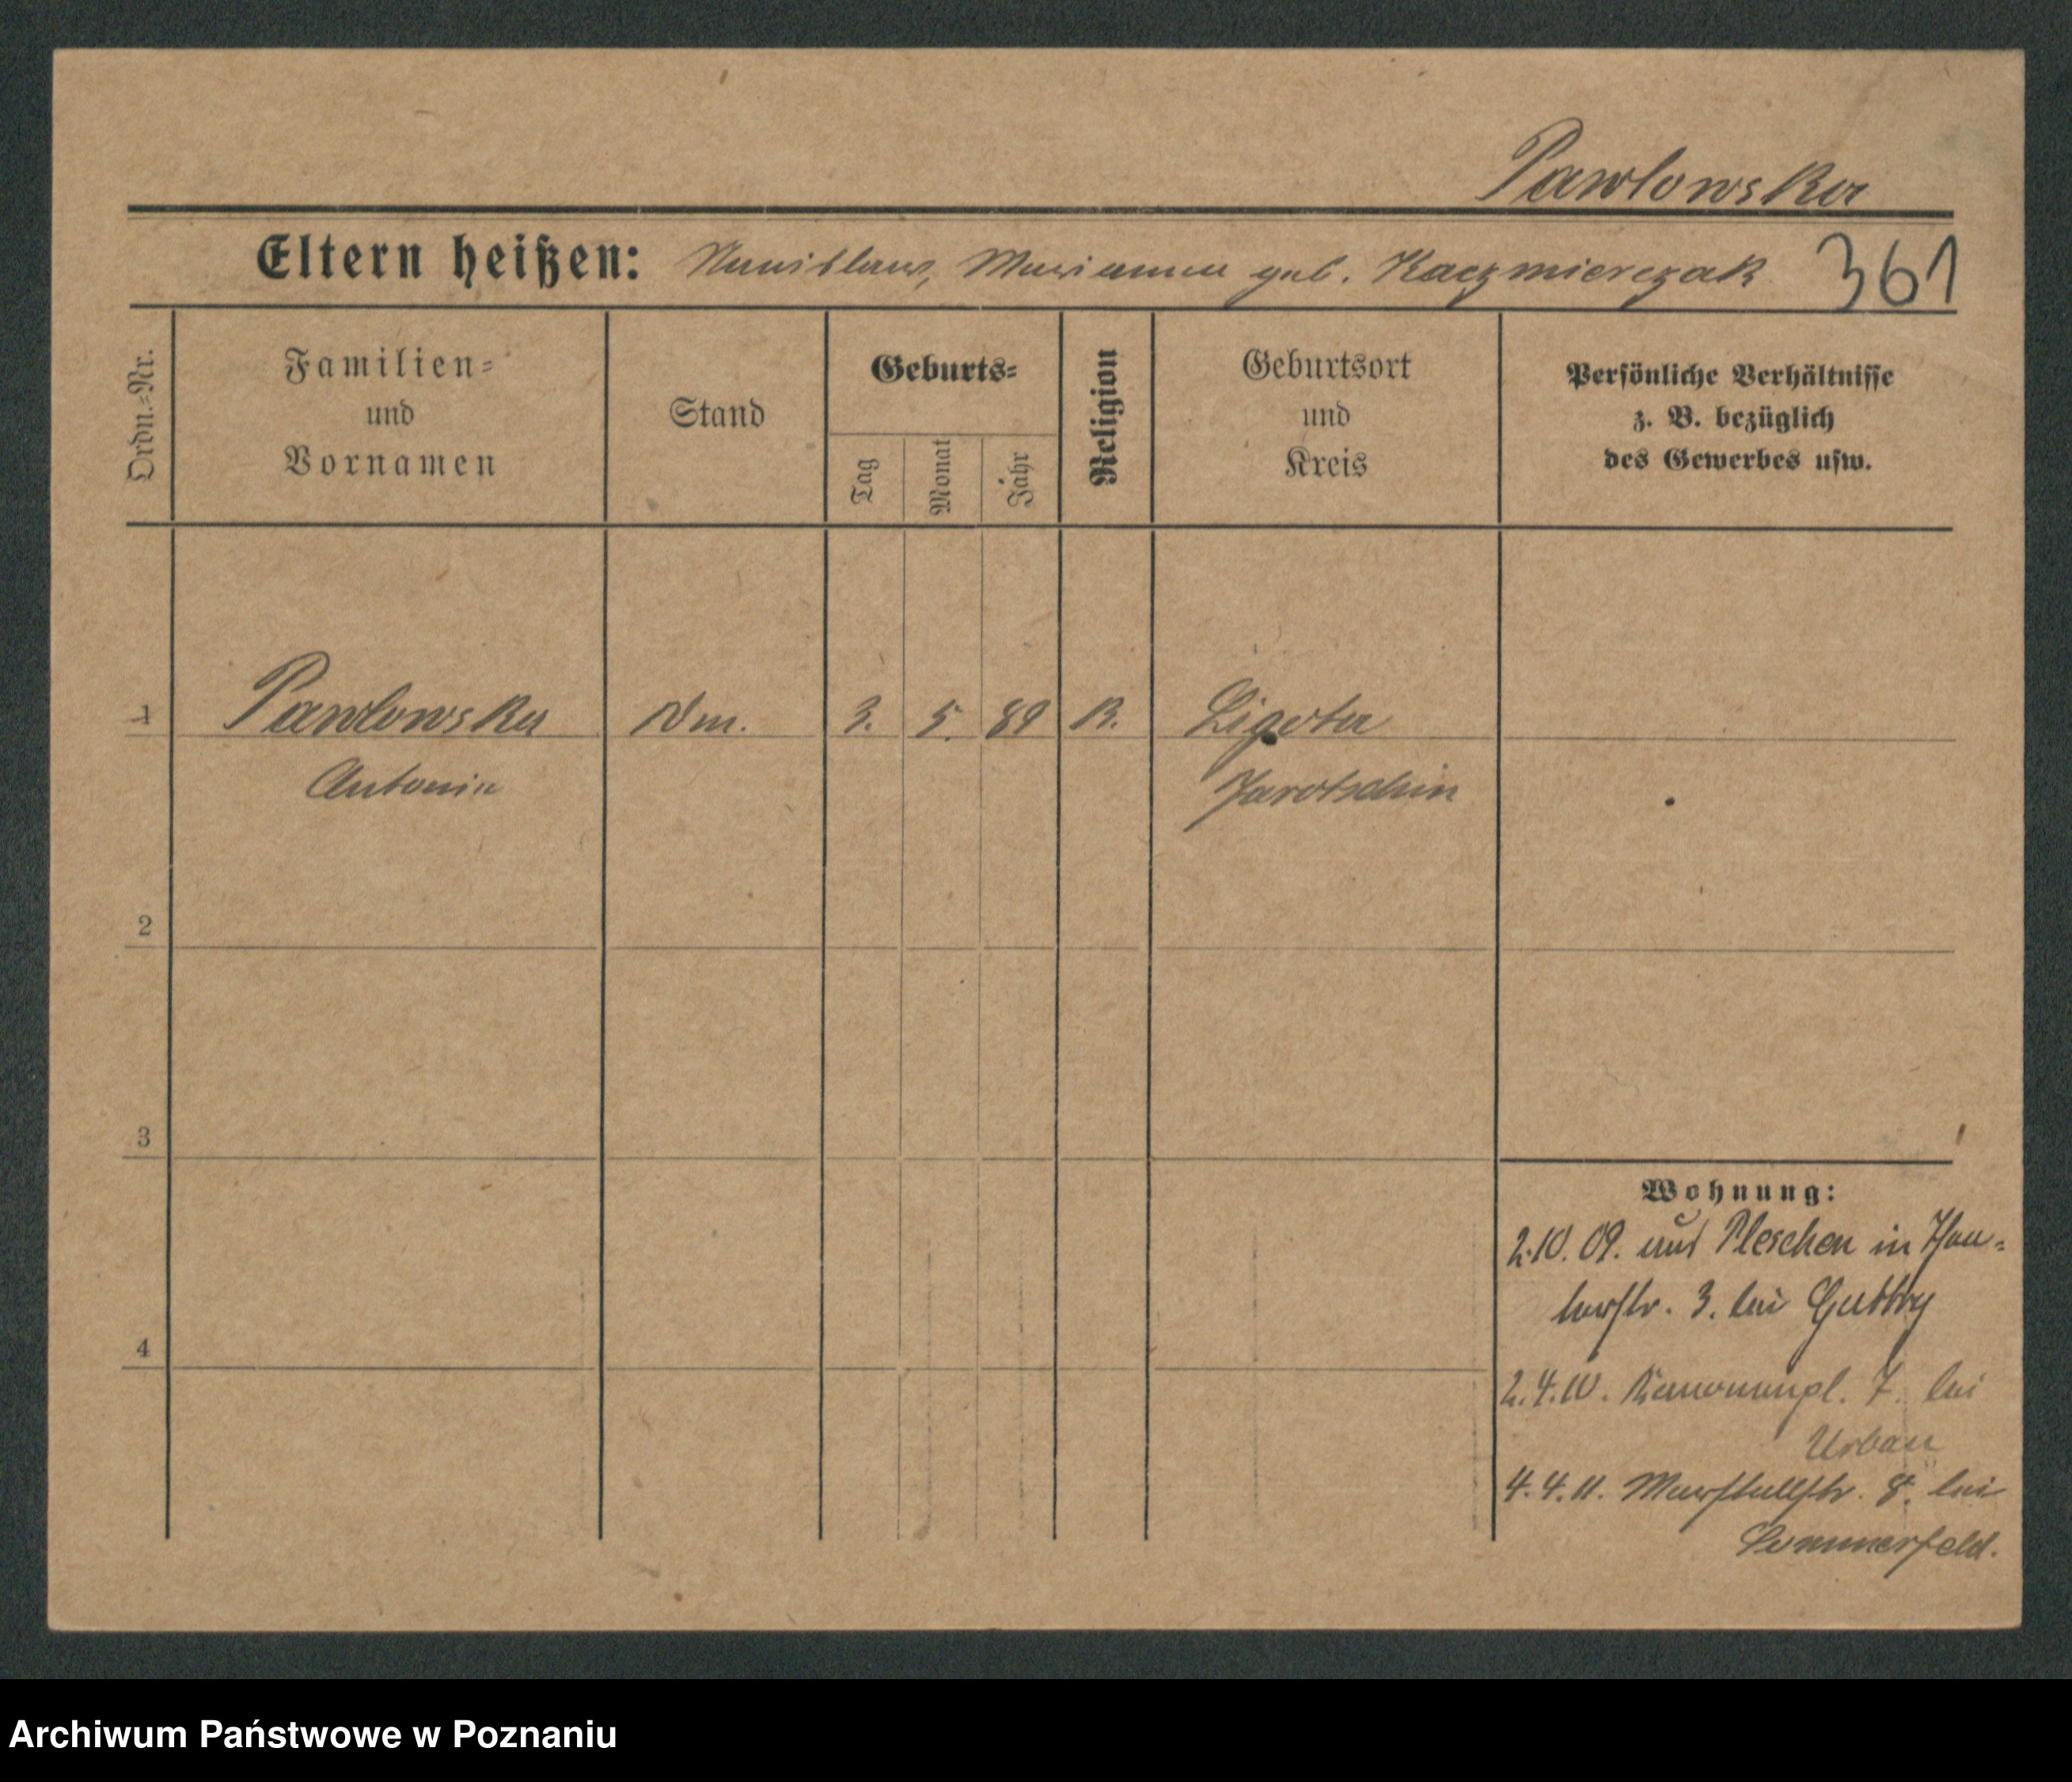 Pawlowska
Eltern heißen: Stanislaus, Marianna geb. Kaczmierczak 361
Ordn.=Nr.
Familien=
und
Vornamen
Stand
Geburts=
Tag
Monat
Jahr
Religion
Geburtsort
und
Kreis
Persönliche Verhältnisse
z. B. bezüglich
des Gewerbes usw.
1 Pawlowska Dm. 3. 5. 89 K. Ligota
Antonia Jarotschin
2
3
4
Wohnung:
2.10.09. aus Pleschen in
3. bei Guttry
2.4.10. Kanonenpl. 7. bei
Urban
4.4.11. Marstallstr. 8. bei
Sommerfeld.
Archiwum Państwowe w Poznaniu